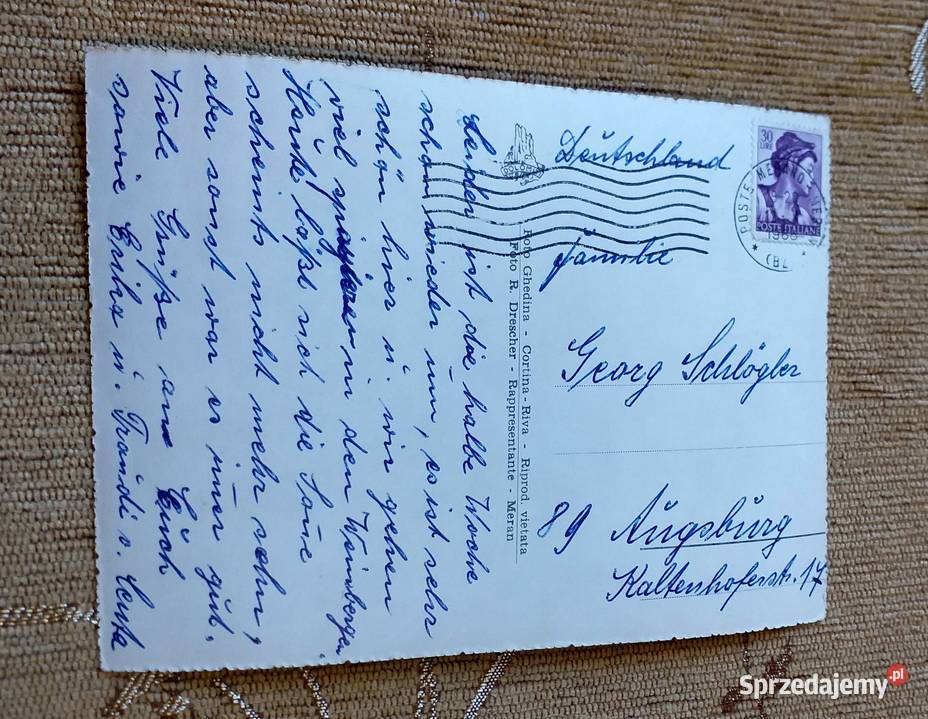 Leider ist die halbe Woche
schon wieder um, es ist sehr
schön hier u. wir gehen
viel spazieren in den Weinbergen.
Heute läßt sich die Son̄e
scheints nicht mehr sehn,
aber sonst war es im̄er gut.
Viele Grüße an Euch
sowie Erika u. Traudi v. Centa
Foto Ghedina - Cortina-Riva - Riprod. vietata
Foto R. Drescher - Rappresentante - Meran
30
LIRE
POSTE ITALIANE
POSTE MERANO
Deutschland
Familie
Georg Schlögler
89 Augsburg
Kaltenhoferstr. 17
Sprzedajemy.pl